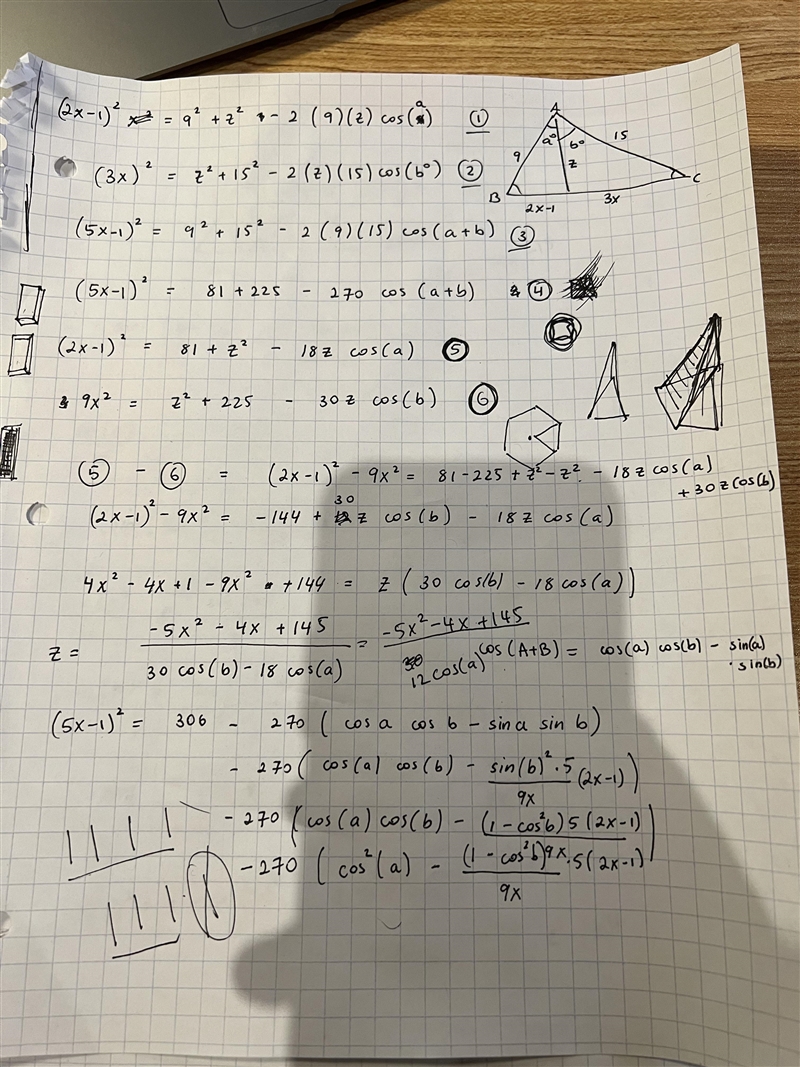 (2x-1)² = 9² + z² - 2 (9)(z) cos(a) ①
(3x)² = z² + 15² - 2(z)(15) cos(b°) ②
(5x-1)² = 9² + 15² - 2(9)(15) cos(a+b) ③
A
a° b°
9
15
z
B
C
2x-1
3x
(5x-1)² = 81 + 225 - 270 cos (a+b) ④
(2x-1)² = 81 + z² - 18z cos(a) ⑤
9x² = z² + 225 - 30z cos(b) ⑥
⑤ - ⑥ = (2x-1)² - 9x² = 81-225 + z² - z² - 18z cos(a)
+ 30z cos(b)
(2x-1)² - 9x² = -144 + 30 z cos(b) - 18z cos(a)
4x² - 4x + 1 - 9x² + 144 = z ( 30 cos(b) - 18 cos(a))
z = (-5x² - 4x + 145)/(30 cos(b) - 18 cos(a)) = (-5x² - 4x + 145)/(12 cos(a))
cos(A+B) = cos(a) cos(b) - sin(a)
· sin(b)
(5x-1)² = 306 - 270 ( cos a cos b - sin a sin b)
- 270 ( cos(a) cos(b) - sin(b)²·5/9x (2x-1))
- 270 (cos(a) cos(b) - (1 - cos²b) 5 (2x-1)/9x)
- 270 ( cos²(a) - (1 - cos²b)/9x · 5(2x-1)